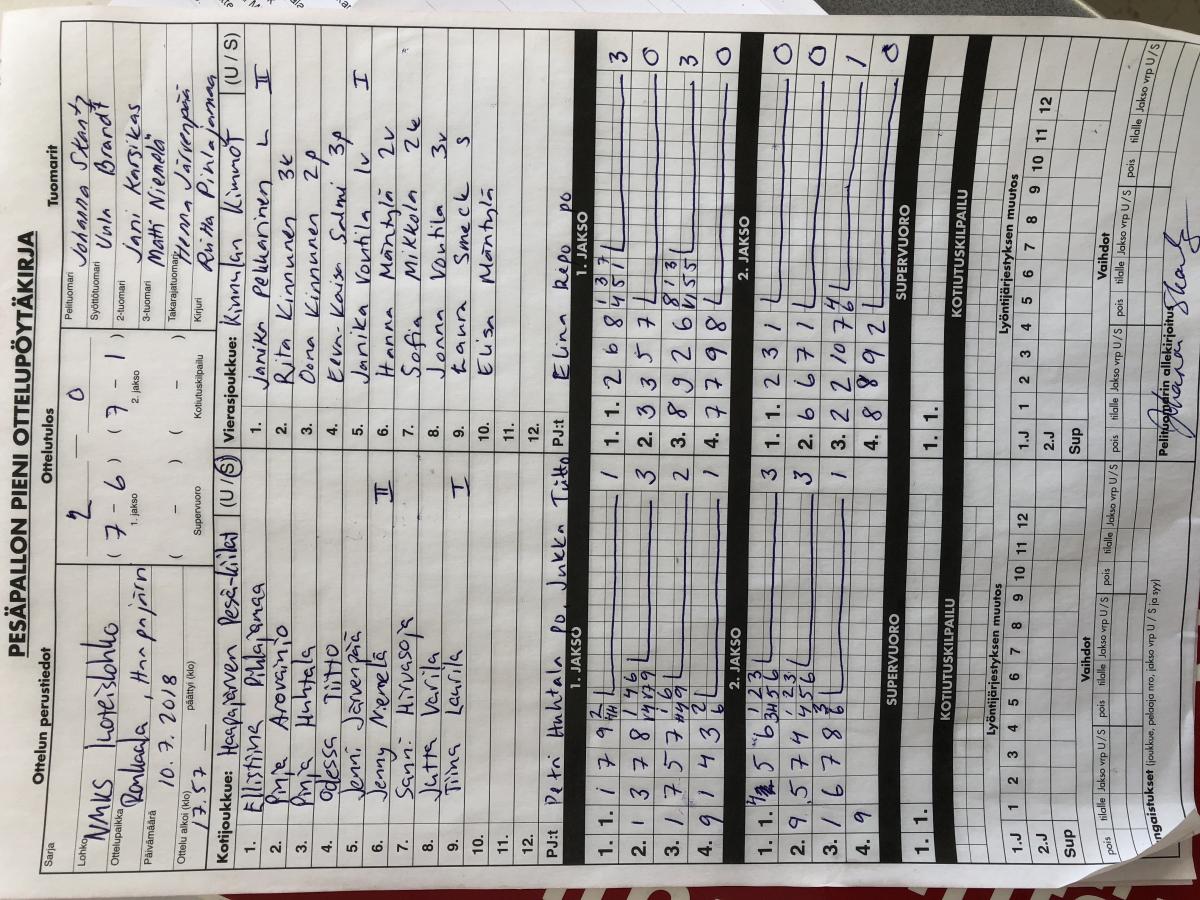 PESÄPALLON PIENI OTTELUPÖYTÄKIRJA
Ottelun perustiedot
Ottelutulos
Tuomarit
Sarja
Lohko NMKS
Ottelupaikka
Päivämäärä 10.7.2018
Ottelu alkoi (klo) 17.57 päättyi (klo)
2 0
( 7 - 6 ) ( 7 - 1 )
1. jakso 2. jakso
( - ) ( - )
Supervuoro Kotiutuskilpailu
Pelituomari Johanna Skantz
Syöttötuomari Ulla Brandt
2-tuomari Jani Karsikas
3-tuomari Matti Niemelä
Takarajatuomari Henna Järvenpää
Kirjuri Riitta Pihlajamaa
Kotijoukkue: Haapajärven Pesä-Kiilat (U / S)
1. Ellistiina Pihlajamaa
2. Pinja Arovainio
3. Pinja Huhtala
4. Odessa Tiitto
5. Jenni Järvenpää
6. Jenny Niemelä II
7. Sanni Hirvasoja
8. Jutta Varila
9. Tiina Laurila I
10.
11.
12.
PJ:t Petri Huhtala po, Jukka Tiitto
Vierasjoukkue: Kinnulan Kinnot (U / S)
1. Janika Pekkarinen L II
2. Rita Kinnunen 3k
3. Oona Kinnunen 2p
4. Eeva-Kaisa Salmi 3p
5. Janika Voutila 1v I
6. Hanna Mäntylä 2v
7. Sofia Mikkola 2k
8. Jonna Voutila 3v
9. Laura Smeck S
10. Elisa Mäntylä
11.
12.
PJ:t Elina Repo po
1. JAKSO
1. 1. 1 7 9 1
2. 1 3 7 8 3
3. 1 7 5 7 2
4. 9 1 4 3 1
1. JAKSO
1. 1. 2 6 8 3
2. 3 3 5 7 0
3. 8 9 2 6 3
4. 7 7 9 8 0
2. JAKSO
1. 1. 5 6 3
2. 9 5 7 4 3
3. 1 6 7 8 1
4. 9
2. JAKSO
1. 1. 2 3 1 0
2. 6 6 7 1 0
3. 2 2 10 7 1
4. 8 8 9 2 0
SUPERVUORO
1. 1.
KOTIUTUSKILPAILU
SUPERVUORO
1. 1.
KOTIUTUSKILPAILU
Lyöntijärjestyksen muutos
1.J 1 2 3 4 5 6 7 8 9 10 11 12
2.J
Sup
Lyöntijärjestyksen muutos
1.J 1 2 3 4 5 6 7 8 9 10 11 12
2.J
Sup
Vaihdot
pois tilalle Jakso vrp U / S pois tilalle Jakso vrp U / S pois tilalle Jakso vrp U / S
Vaihdot
pois tilalle Jakso vrp U / S pois tilalle Jakso vrp U / S pois tilalle Jakso vrp U / S
(joukkue, pelaaja nro, jakso vrp U / S ja syy)
Pelituomarin allekirjoitus